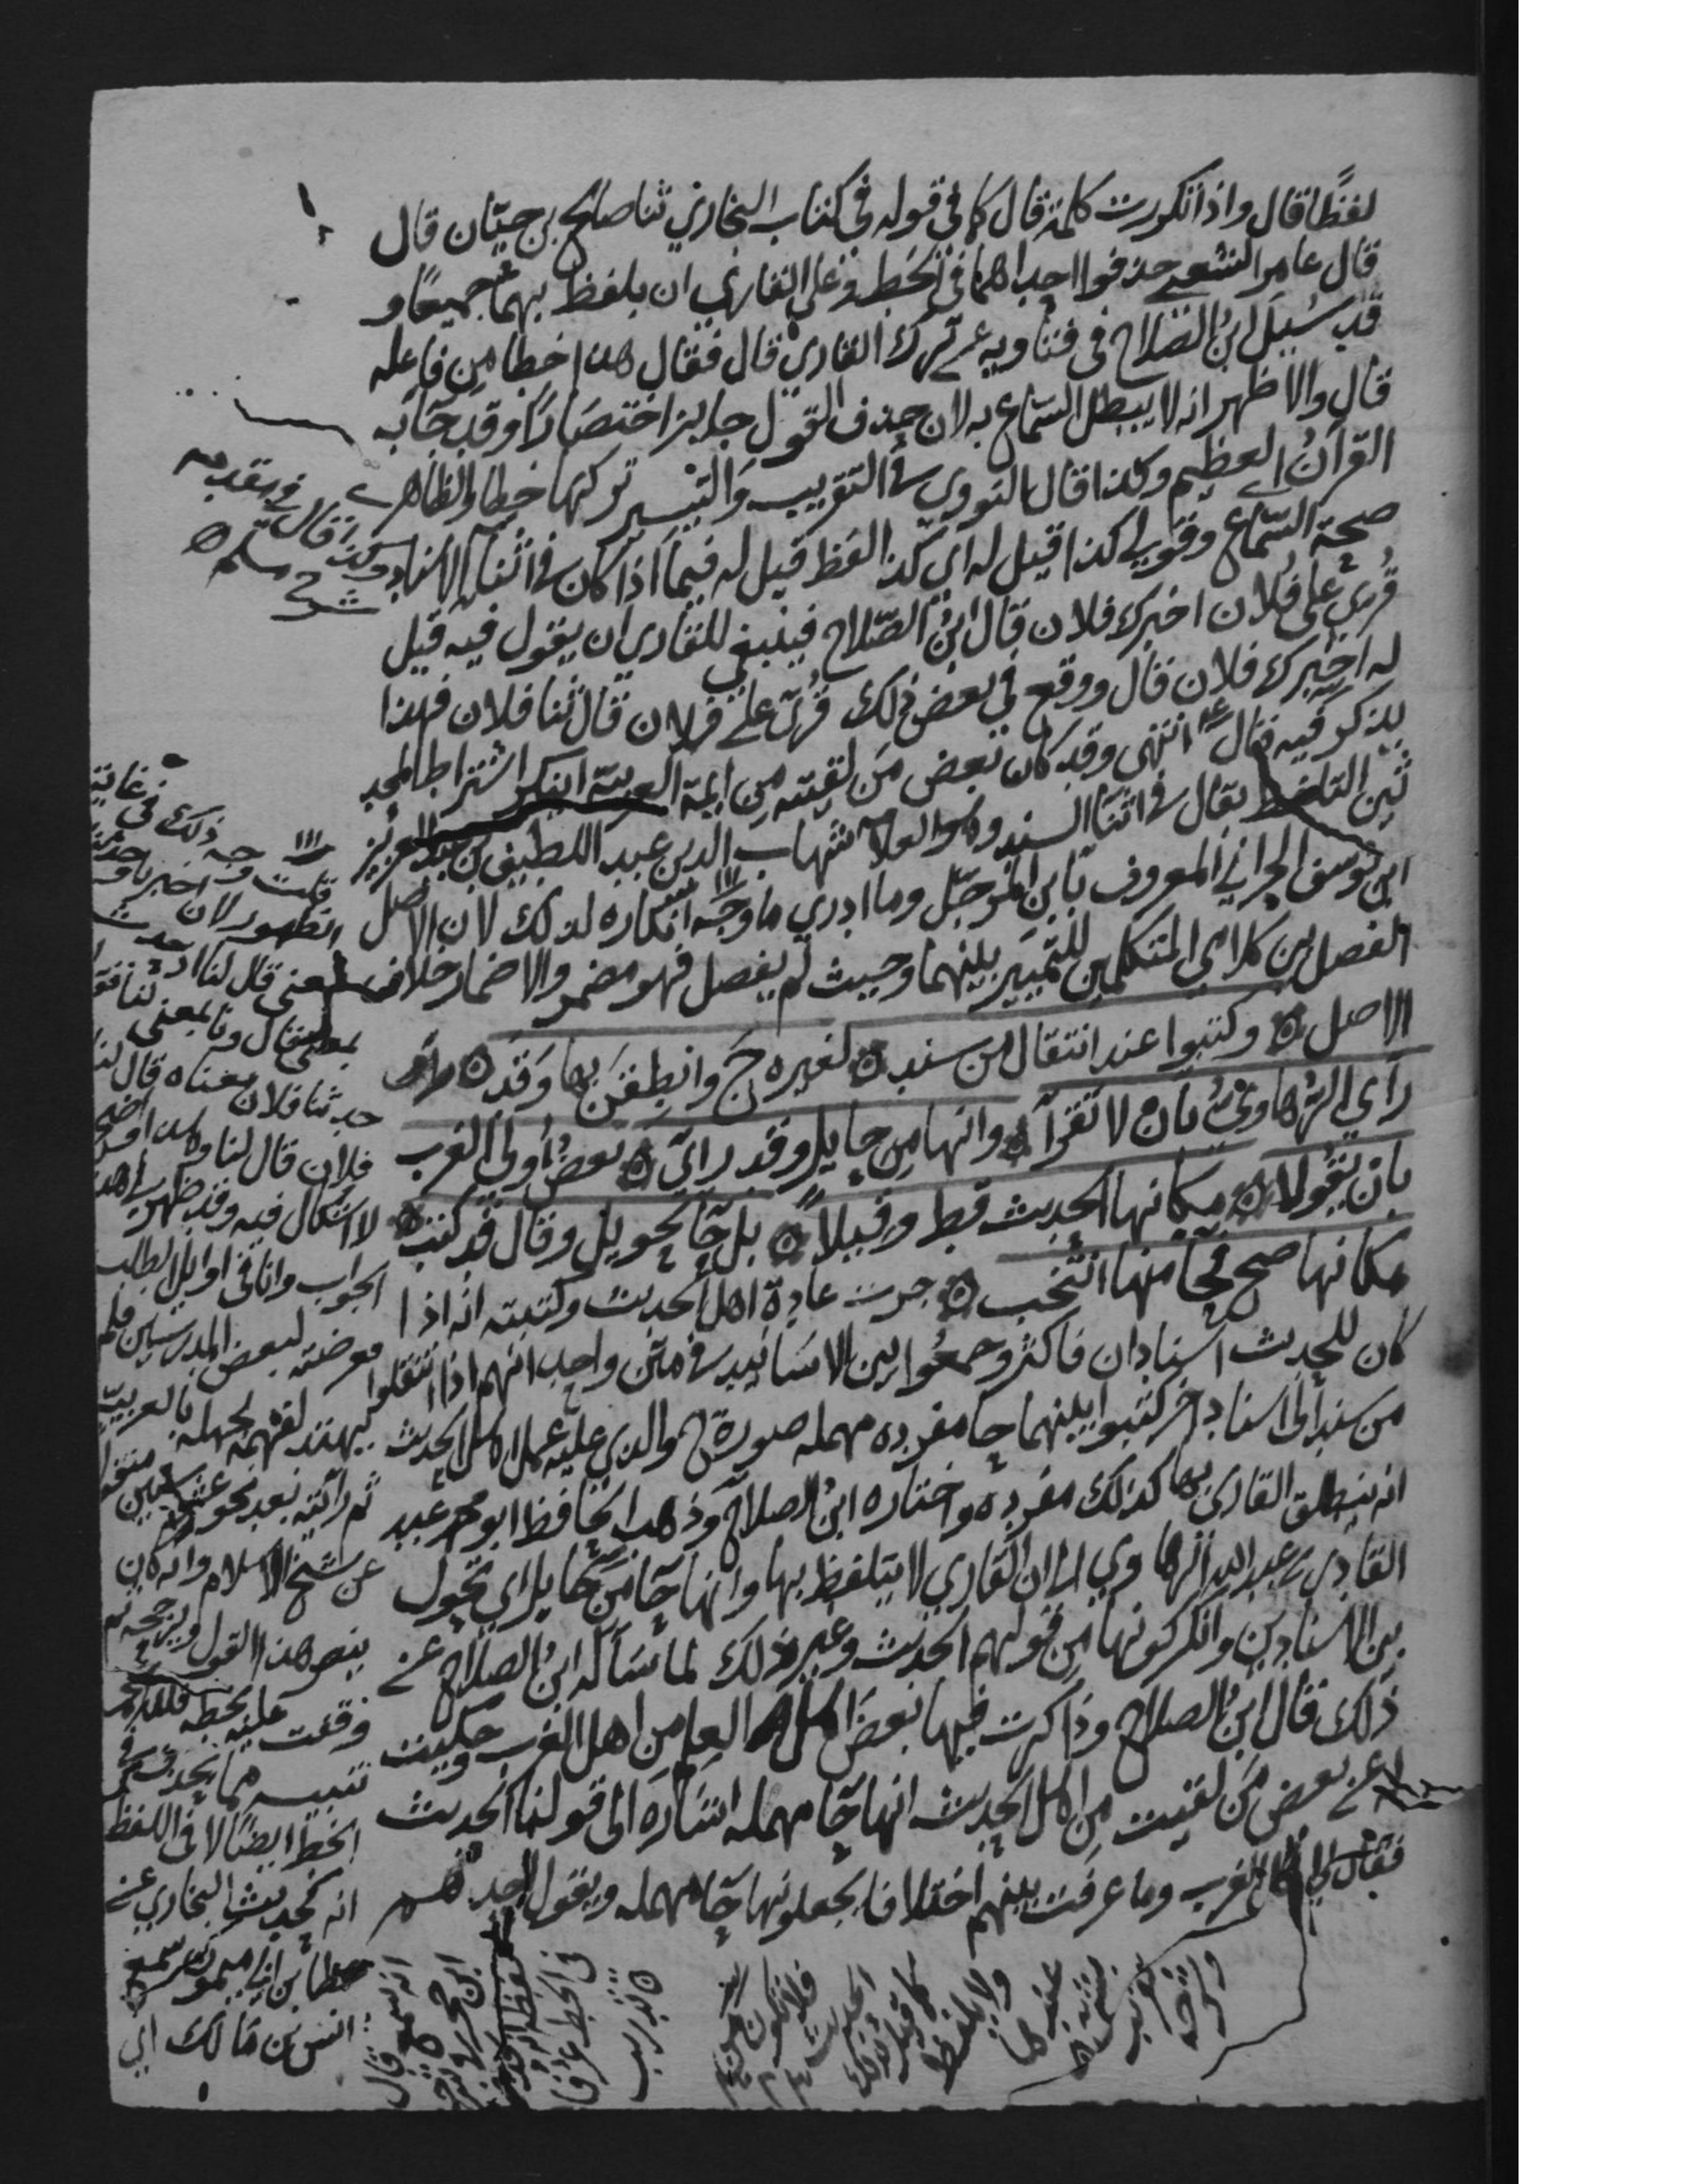 لفظًا قال واذا تكررت كلمة قال كما في قوله في كتاب البخاري ثنا صالح بن حيّان قال
قال عامر الشعبي حذفوا احداهما في الخط وعلى القاري ان يلفظ بهما جميعًا و
قد سُيِل ابن الصلاح في فتاويه عن ترك القاري قال فقال هذا خطا من فاعله
قال والاظهر انه لا يبطل السماع به لان حذف القول جايز اختصارًا وقد جآ به
القرآنُ العظيم وكذا قال النووي في التقريب والتيسير تركها خطا والظاهر
صحة السّماع وقولي كذا قيل له اي كذا لفظ قيل له فيما اذا كان في اثنآ الاسناد
قُرئ على فلان اخبرك فلان قال ابنُ الصّلاح فينبغي للقاري ان يقول فيه قيل
له اخبرك فلان قال ووقع في بعض ذلك قُرئ على فلان قال ثنا فلان فهذا
يذكر فيه قال انتهى وقد كان بعض مَن لقيته من ايمة العربية ينكر اشتراط المحد
ثين التلفظ بقال في اثنا السند وهو العلامه شهاب الدين عبد اللطيف بن عبد العزيز
ابن يوسف الحراني المعروف بابن المرحّل وما ادري ما وجه انكاره لذلك لان الاصل
الفصل بين كلامي المتكلمين للتمييز بينهما وحيث لم يفصل فهو مضمر والاضمار خلاف
الاصل ۞ وكتبوا عند انتقال من سند ۞ لغيره ح وانطِقَنْ بها وقد ۞
رأى الرُّهاويُّ بان لا تُقرآ ۞ وانها من حايل وقد رأى ۞ بعضُ أولي الغرب
بان يقولا ۞ مكانها الحديث قط وقيلا ۞ بل حآ تحويل وقال قد كُتب ۞
مكانها صح فحآ منها انتُخب ۞ جرت عادة اهل الحديث وكتبته انه اذا
كان للحديث اسنادان فاكثر وجمعُوا بين الاسانيد في متن واحد انهم اذا انتقلوا
من سند الى اسناد اخر كتبوا بينهما حا مفرده مهمله صورة ح والذي عليه عمل اهل الحديث
انه ينطق القاري بها كذلك مفرده واختاره ابنُ الصلاح وذهب الحافظ ابو محمد عبد
القادر بن عبد الله الرهاوي الى ان القاري لا يتلفظ بها وانها حآ من حايل اي تحول
بين الاسنادين وانكر كونها من قولهم الحديث وغير ذلك لما سأله ابنُ الصلاح عن
ذلك قال ابنُ الصلاح وذاكرت فيها بعضَ اهل العلم من اهل الغرب وحكيت
له عن بعض مَن لقيت من اهل الحديث انها حآ مهمله اشارة الى قولنا الحديث
فقال لي اهل الغرب وما عرفت بينهم اختلافا يجعلونها حآ مهمله ويقول احدهم
وكذا قال في مقدمه
شرح مسلم
قلت وجه ذلك في غاية
الظهور لان اخبرنا وحدثنا
بمعنى قال لنا
حدثنا فلان معناه قال لنا
فلان قال لنا
لا اشكال فيه وقد ظهر لي هذا
الجواب وانا في اوايل الطلب
فعرضته لبعض المدرسين فلم
يهتد لفهمه لجهله بالعربية
ثم رأيته بعد نحو عشر سنين منقولا
عن شيخ الاسلام وانه كان
ينصر هذا القول ويرجحه ثم
وقفت عليه بخطه فلله الحمد
تنبيه مما يحذف في
الخط ايضًا لا في اللفظ
انه كحديث البخاري عن
عطا بن ابي ميمونه سمع
انس بن مالك اي